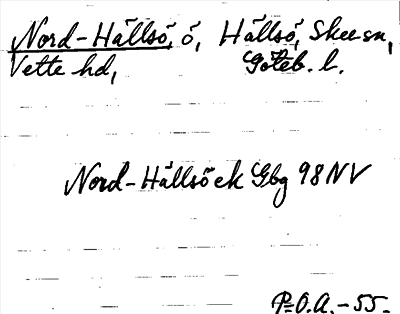 Nord-Hällsö, ö, Hällsö, Skee sn,
Vette hd, Göteb. l.
Nord-Hällsö ek Gbg 98 NV
P.O.A. -55.